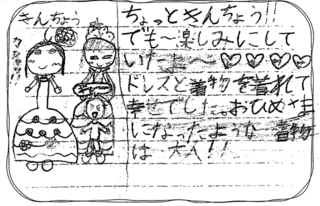 きんちょう
カシャッ!!
ちょっときんちょう!!
でも〜楽しみにして
いたよ〜♡♡♡♡
ドレスと着物を着れて
幸せでした。おひめさま
になったような 着物
は大人!!